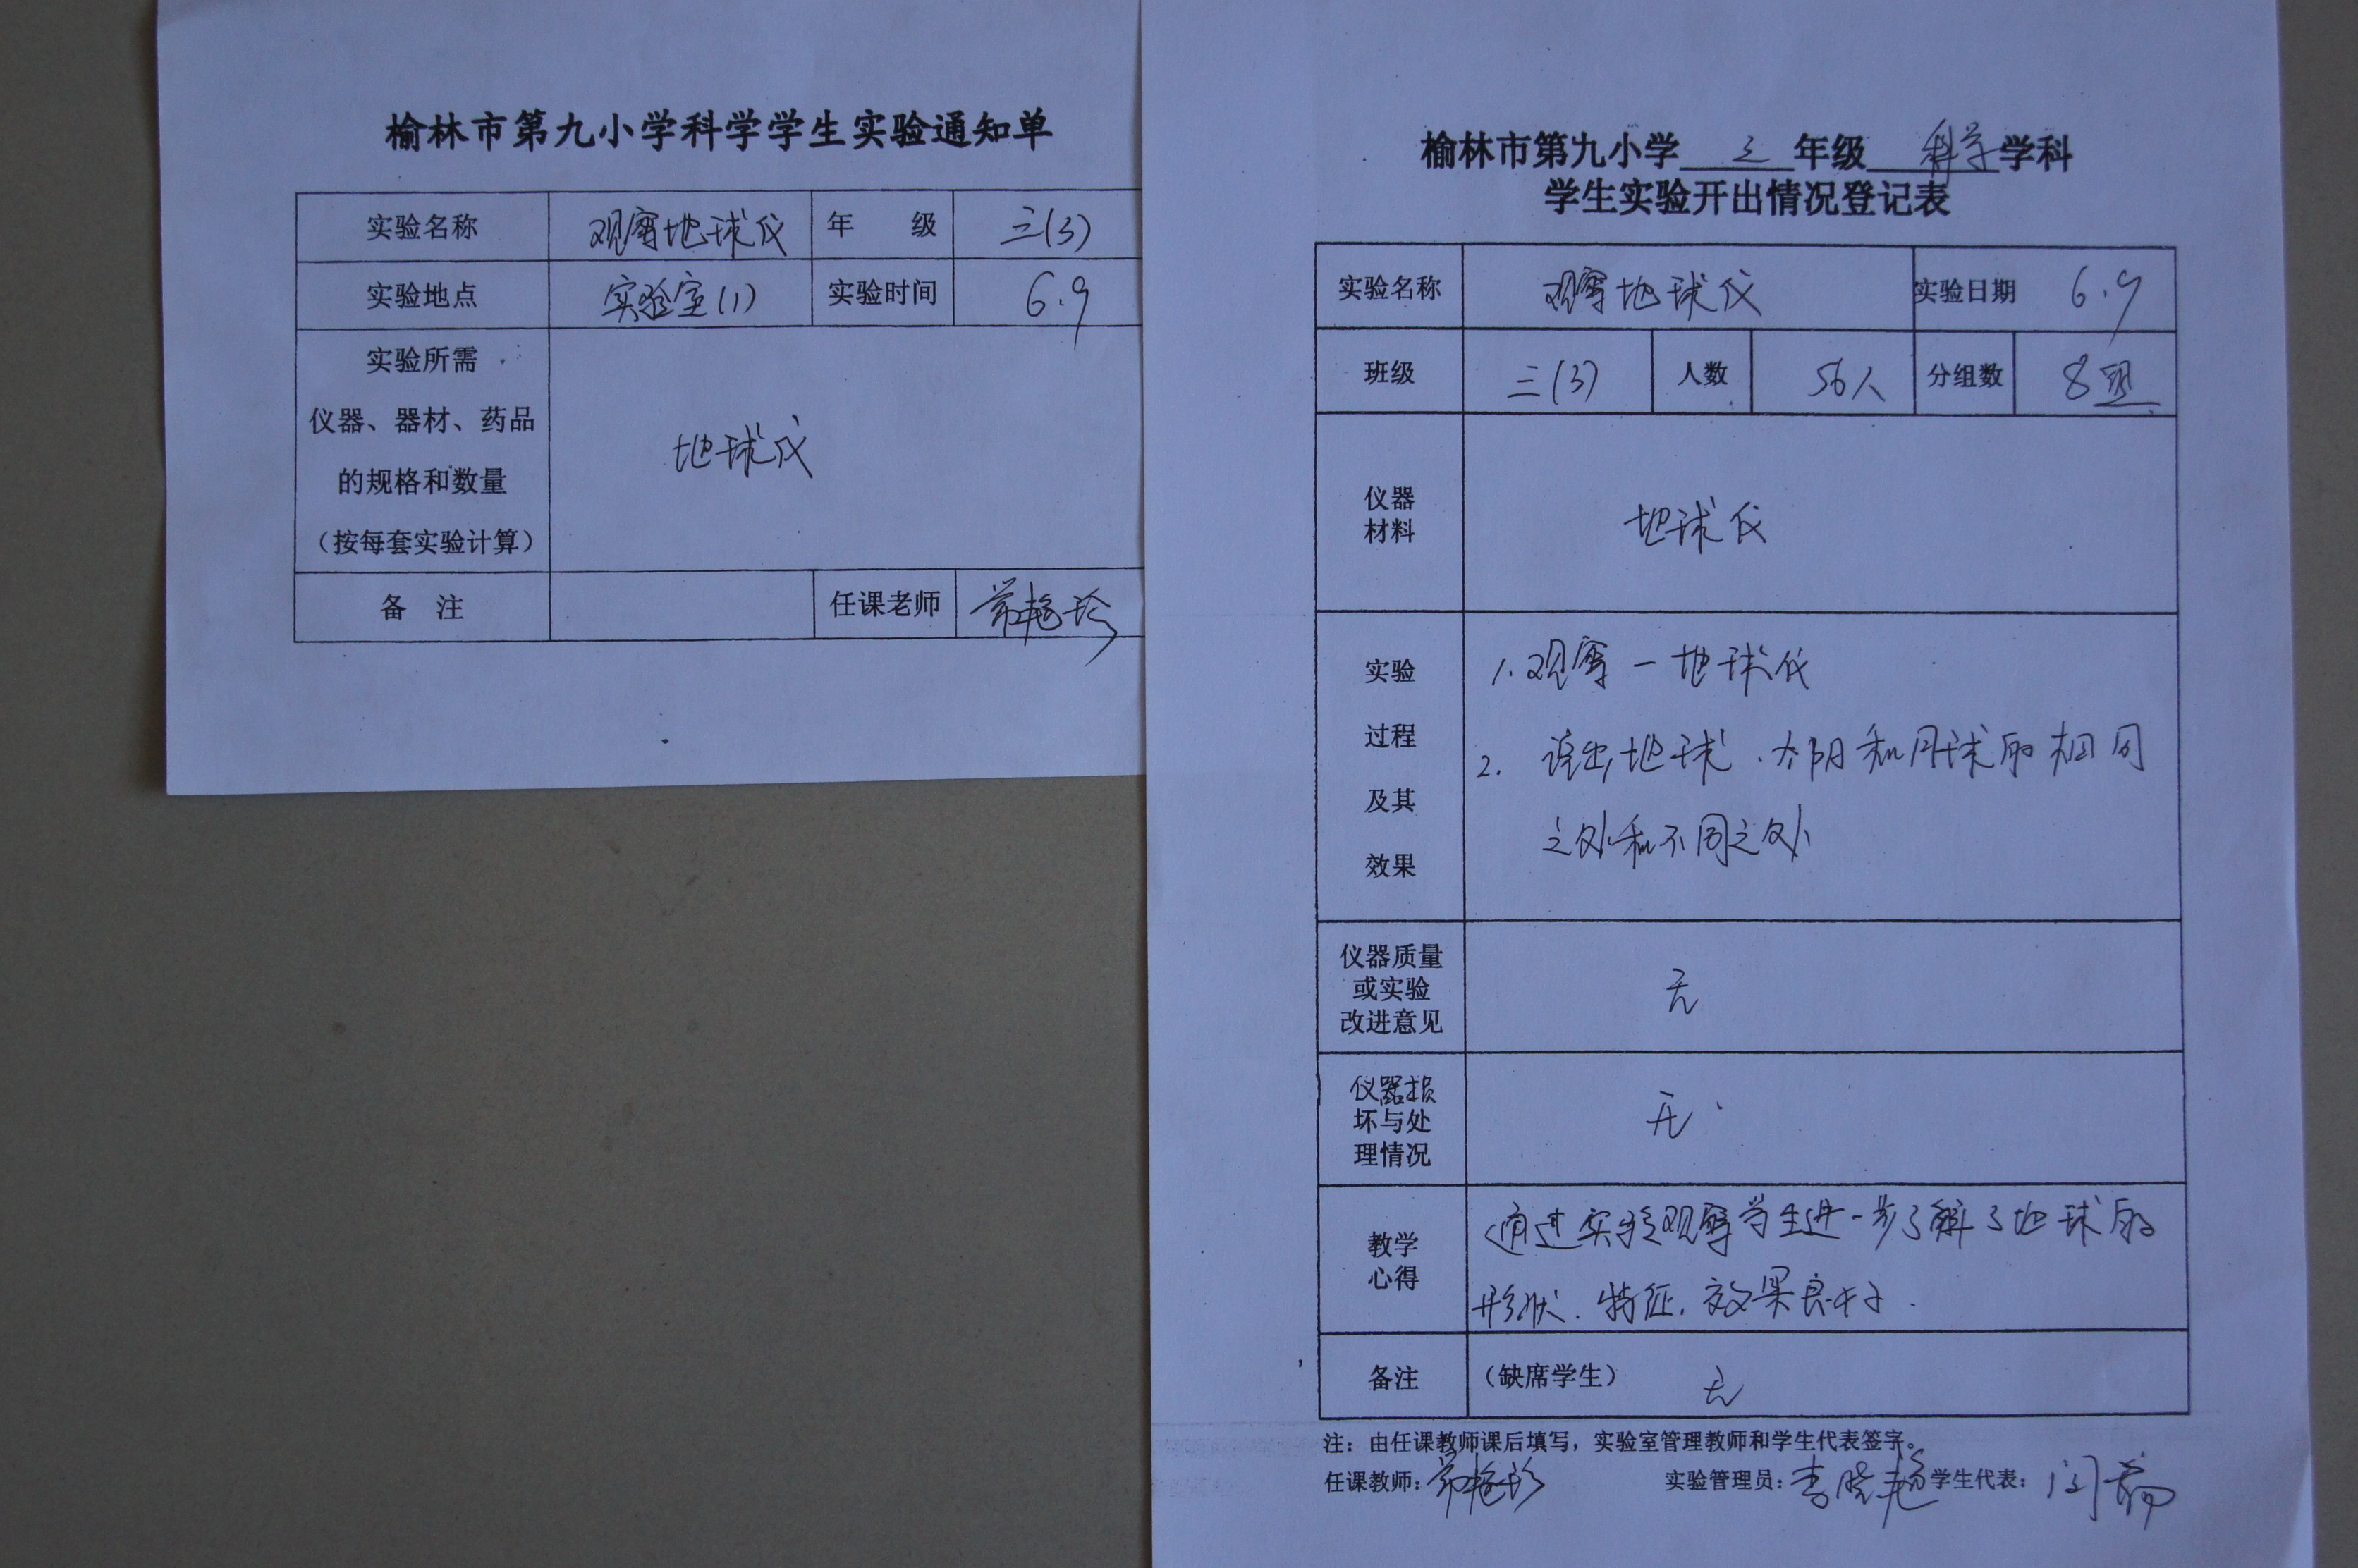 榆林市第九小学科学学生实验通知单
实验名称 观察地球仪 年 级 三(3)
实验地点 实验室(1) 实验时间 6.9
实验所需
仪器、器材、药品
的规格和数量
（按每套实验计算）
地球仪
备 注 任课老师 常艳珍
榆林市第九小学 三 年级 科学 学科
学生实验开出情况登记表
实验名称 观察地球仪 实验日期 6.9
班级 三(3) 人数 56人 分组数 8组
仪器
材料
地球仪
实验
过程
及其
效果
1.观察一地球仪
2. 说出地球、太阳和月球的相同
之处和不同之处
仪器质量
或实验
改进意见
无
仪器损
坏与处
理情况
无
教学
心得
通过实验观察学生进一步了解了地球的
形状、特征,效果良好.
备注 （缺席学生） 无
注：由任课教师课后填写，实验室管理教师和学生代表签字。
任课教师：常艳珍 实验管理员：李晓艳 学生代表：闫